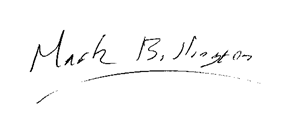 Mark Billington